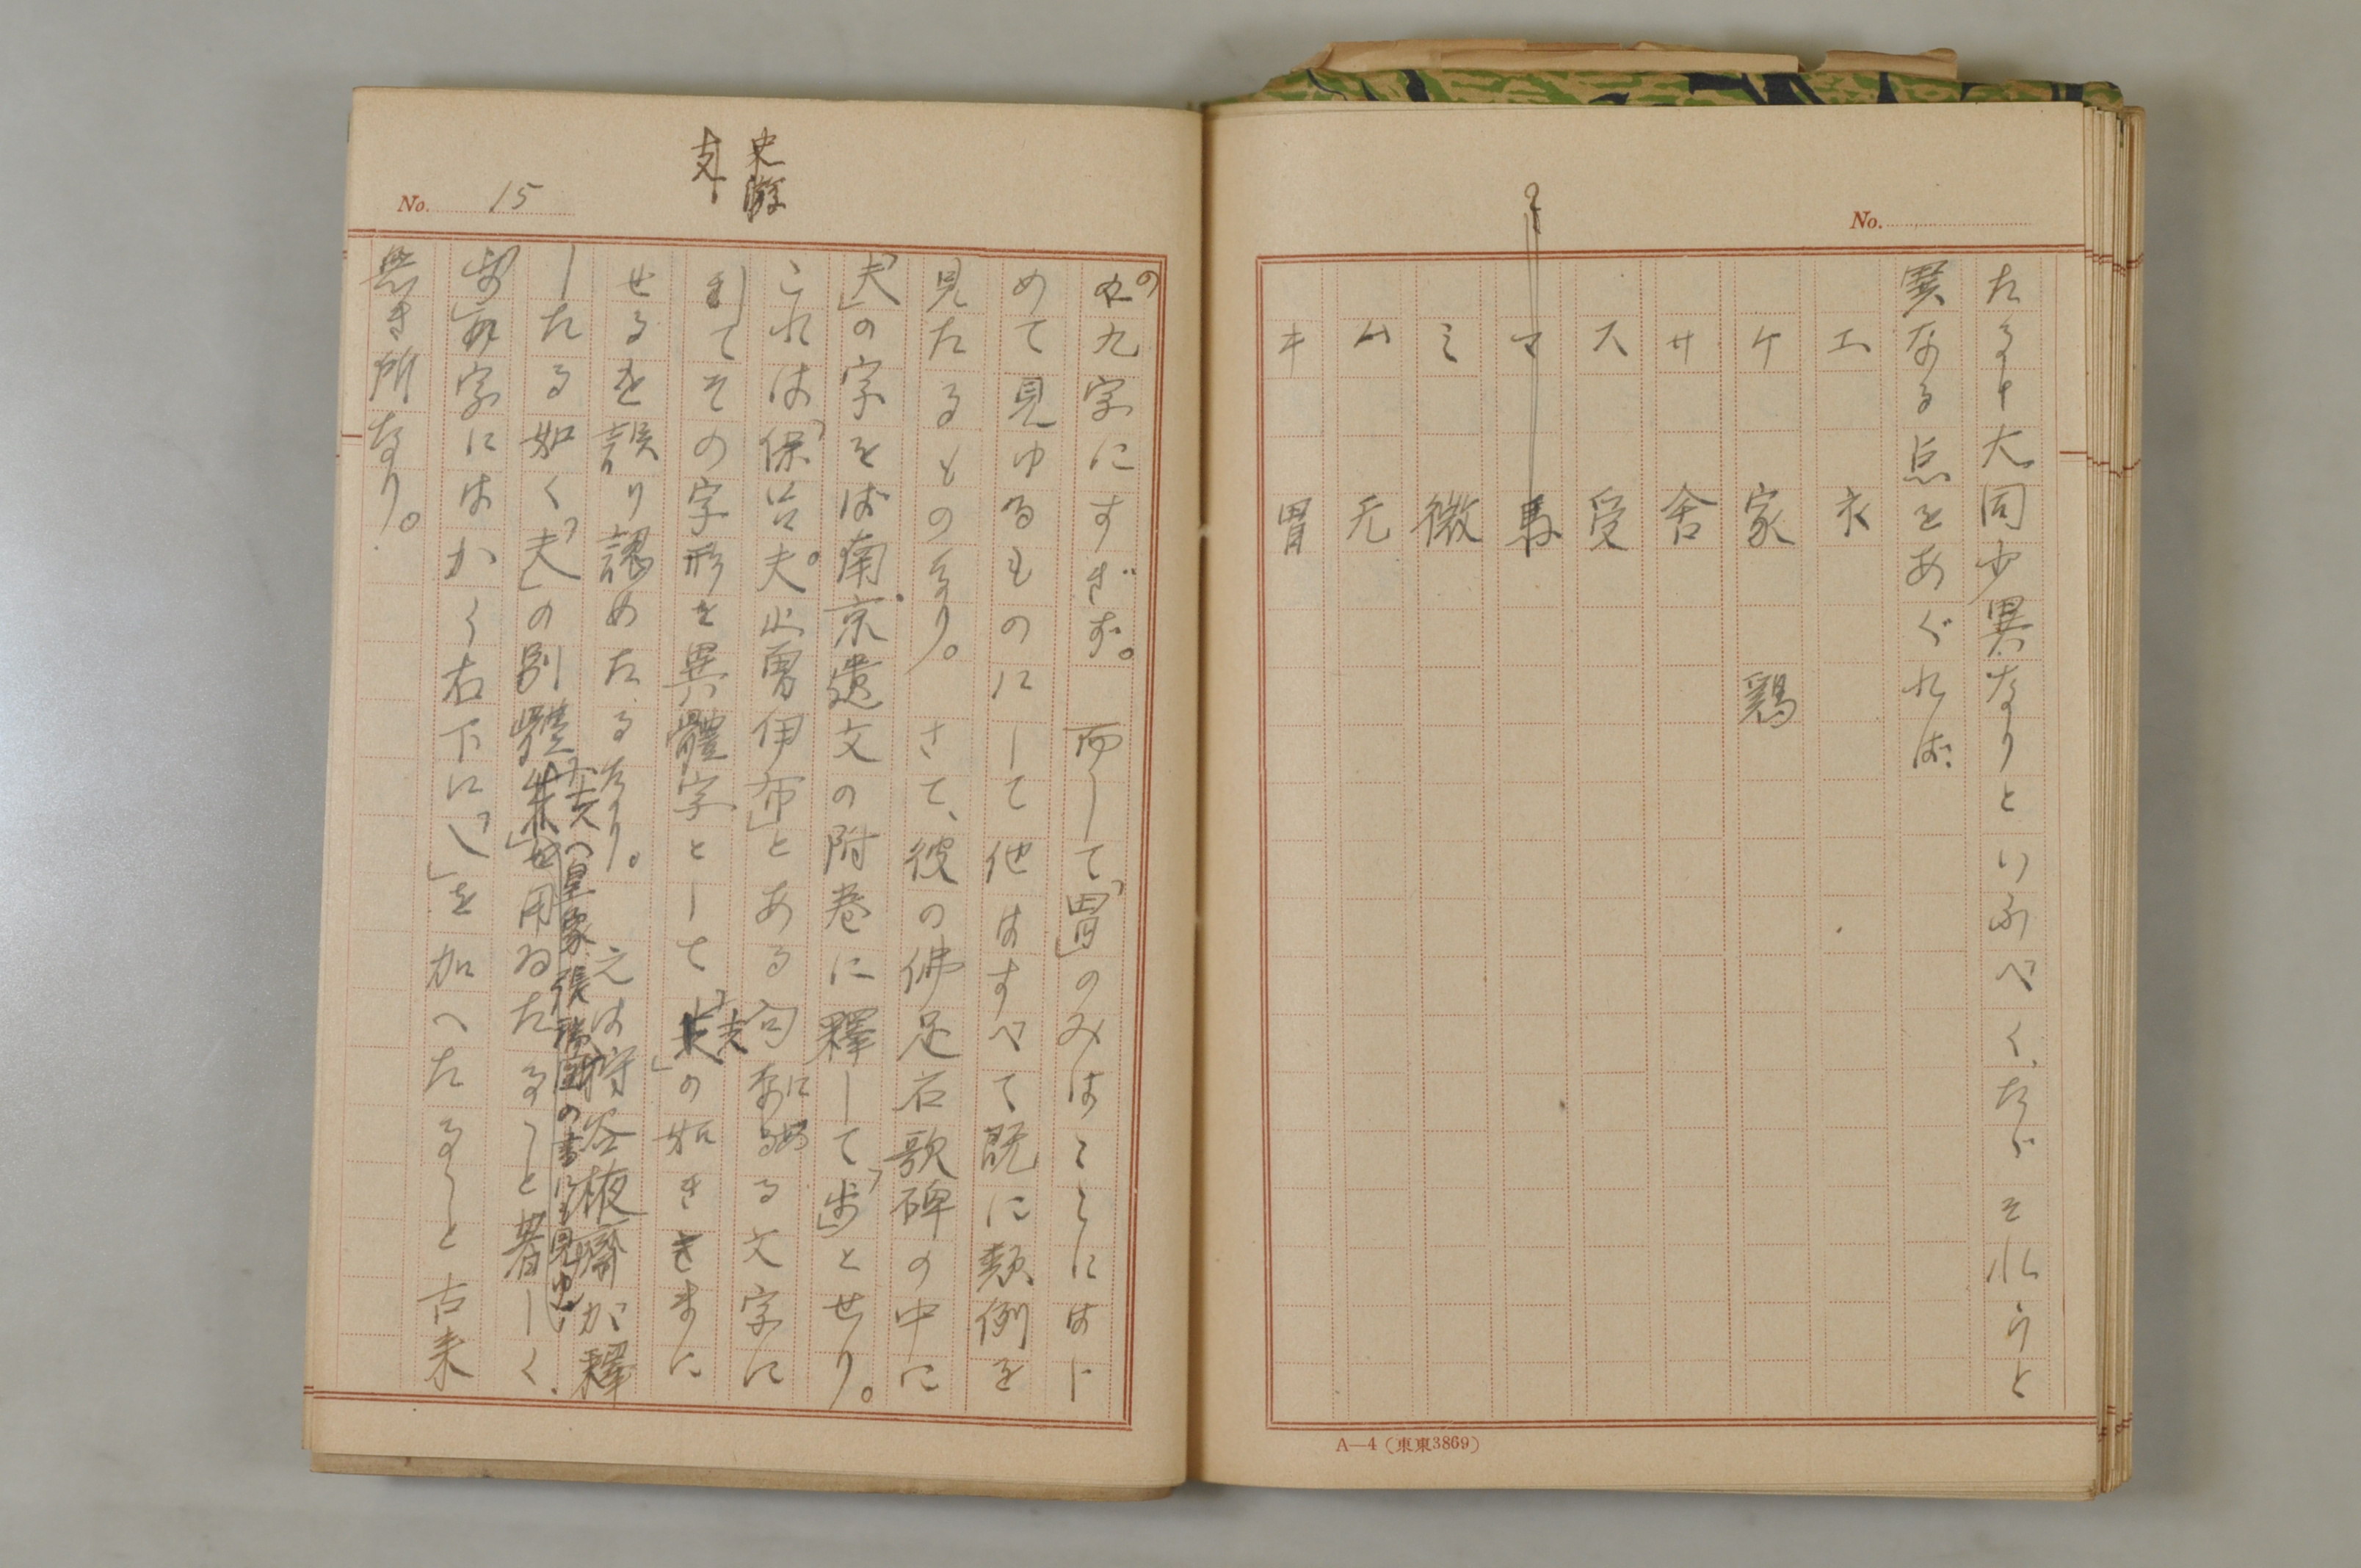 No.
たると大同少異なりといふべく、たゞそれらと
異なる点をあぐれば
エ 衣
ケ 家 鶏
サ 舎
ス 受
マ 馬
ミ 微
ム 无
キ 胃
A—4（東東3869）
史游
No. 15
の九字にすぎず。 而して「胃」のみはここにはじ
めて見ゆるものにして他はすべて既に類例を
見たるものなり。 さて、彼の佛足石歌碑の中に
「夫」の字をば南京遺文の附巻に釋して「歩」とせり。
これは「保止夫止曽伊布」とある句にある文字に
してその字形を異體字として の如きさまに
せるを誤り認めたるなり。 元は狩谷棭齋が釋
したる如く、「夫」の別體 を用ゐたること著しく、
（皇象、張瑞圖の書にも見ゆ）
字にはかく右下に「乀」を加へたること古来
無き所なり。